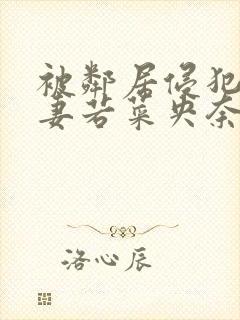 被鄰居侵犯
妻若菜央奈
洛心辰